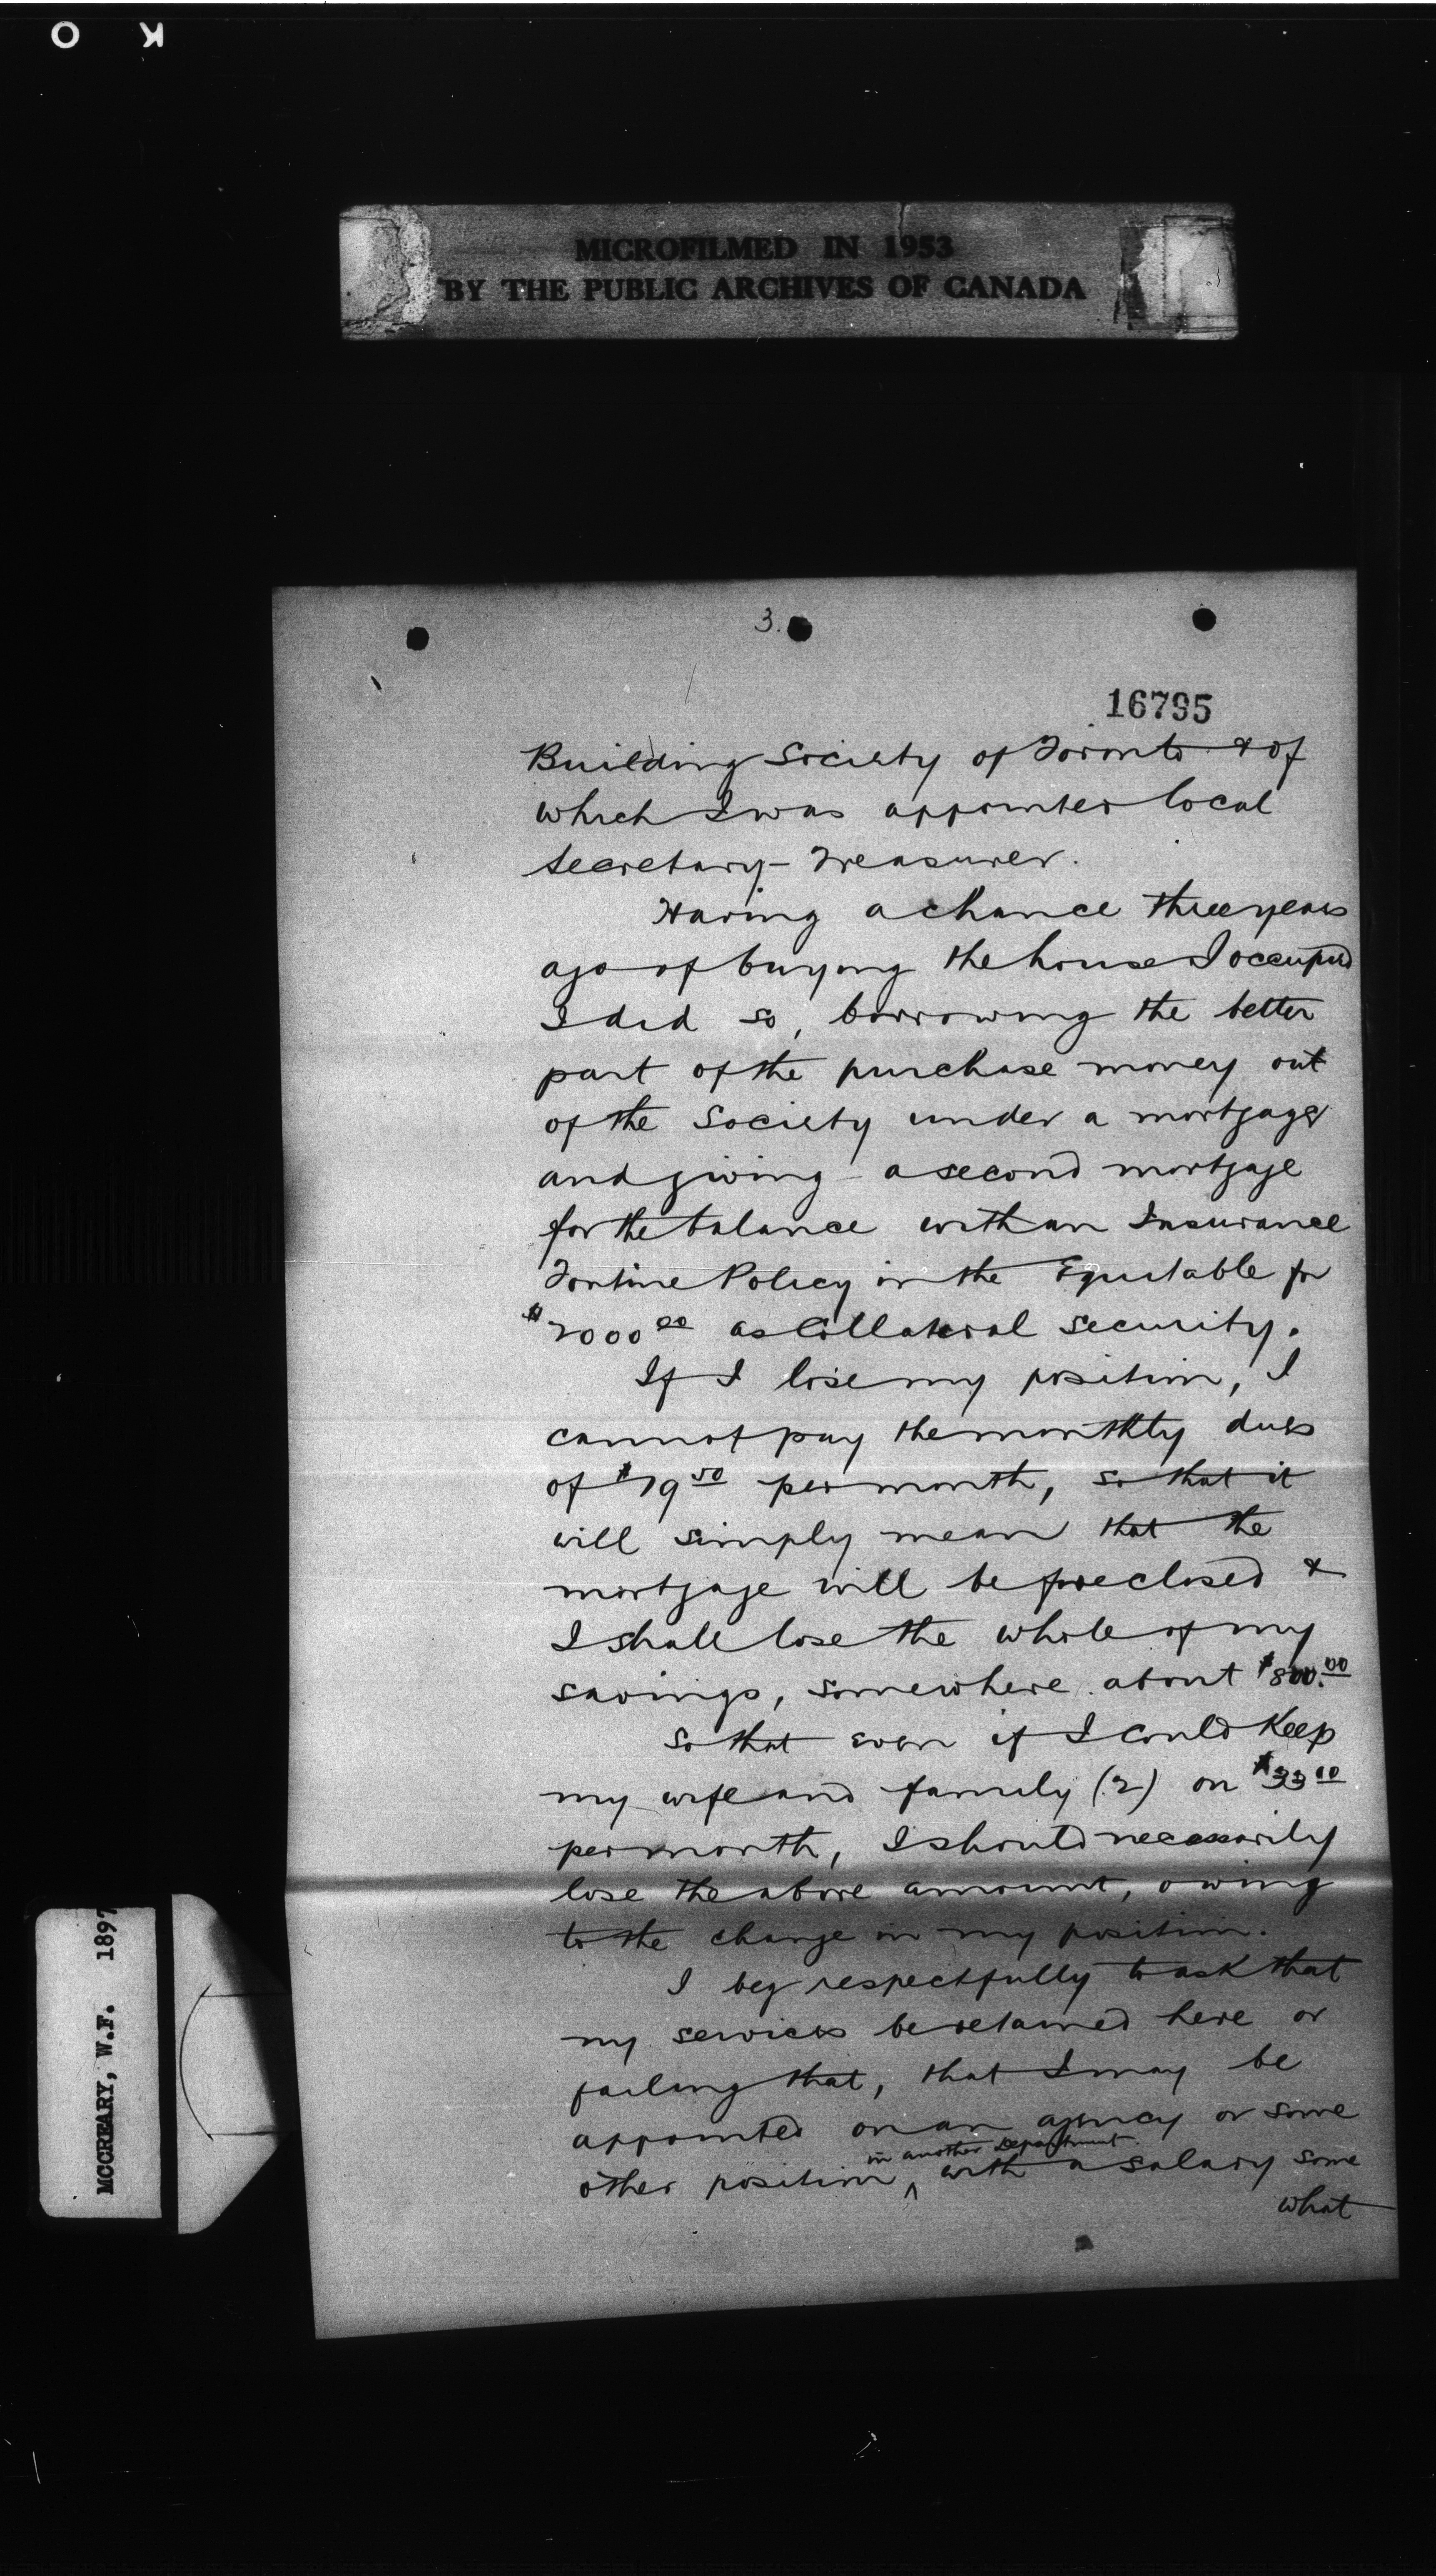 O K
MICROFILMED IN 1953
BY THE PUBLIC ARCHIVES OF CANADA
3.
16795
Building Society of Toronto & of
which I was appointed local
Secretary-Treasurer.
Having a chance three years
ago of buying the house I occupied
I did so, borrowing the better
part of the purchase money out
of the Society under a mortgage
and giving a second mortgage
for the balance with an Insurance
Tontine Policy in the Equitable for
$2000.00 as Collateral security.
If I lose my position, I
cannot pay the monthly dues
of $19.50 per month, so that it
will simply mean that the
mortgage will be foreclosed &
I shall lose the whole of my
savings, somewhere about $800.00
So that even if I could keep
my wife and family (2) on $33.00
per month, I should necessarily
lose the above amount, owing
to the change in my position.
I beg respectfully to ask that
my services be retained here or
failing that, that I may be
appointed on an agency or some
in another Department
other position, ^ with a salary some
what
MCCREARY, W.F. 1897